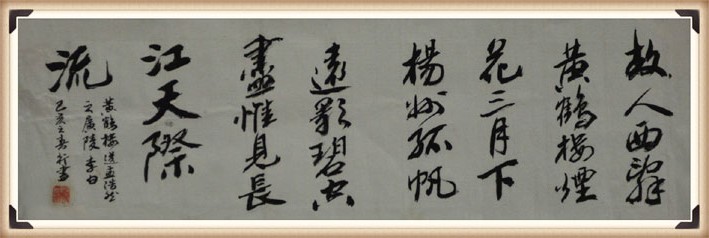 故人西辭
黄鶴楼煙
花三月下
楊州孤帆
遠影碧空
盡惟見長
江天際
流
黄鶴楼送孟浩然
之廣陵 李白
己亥之春行書